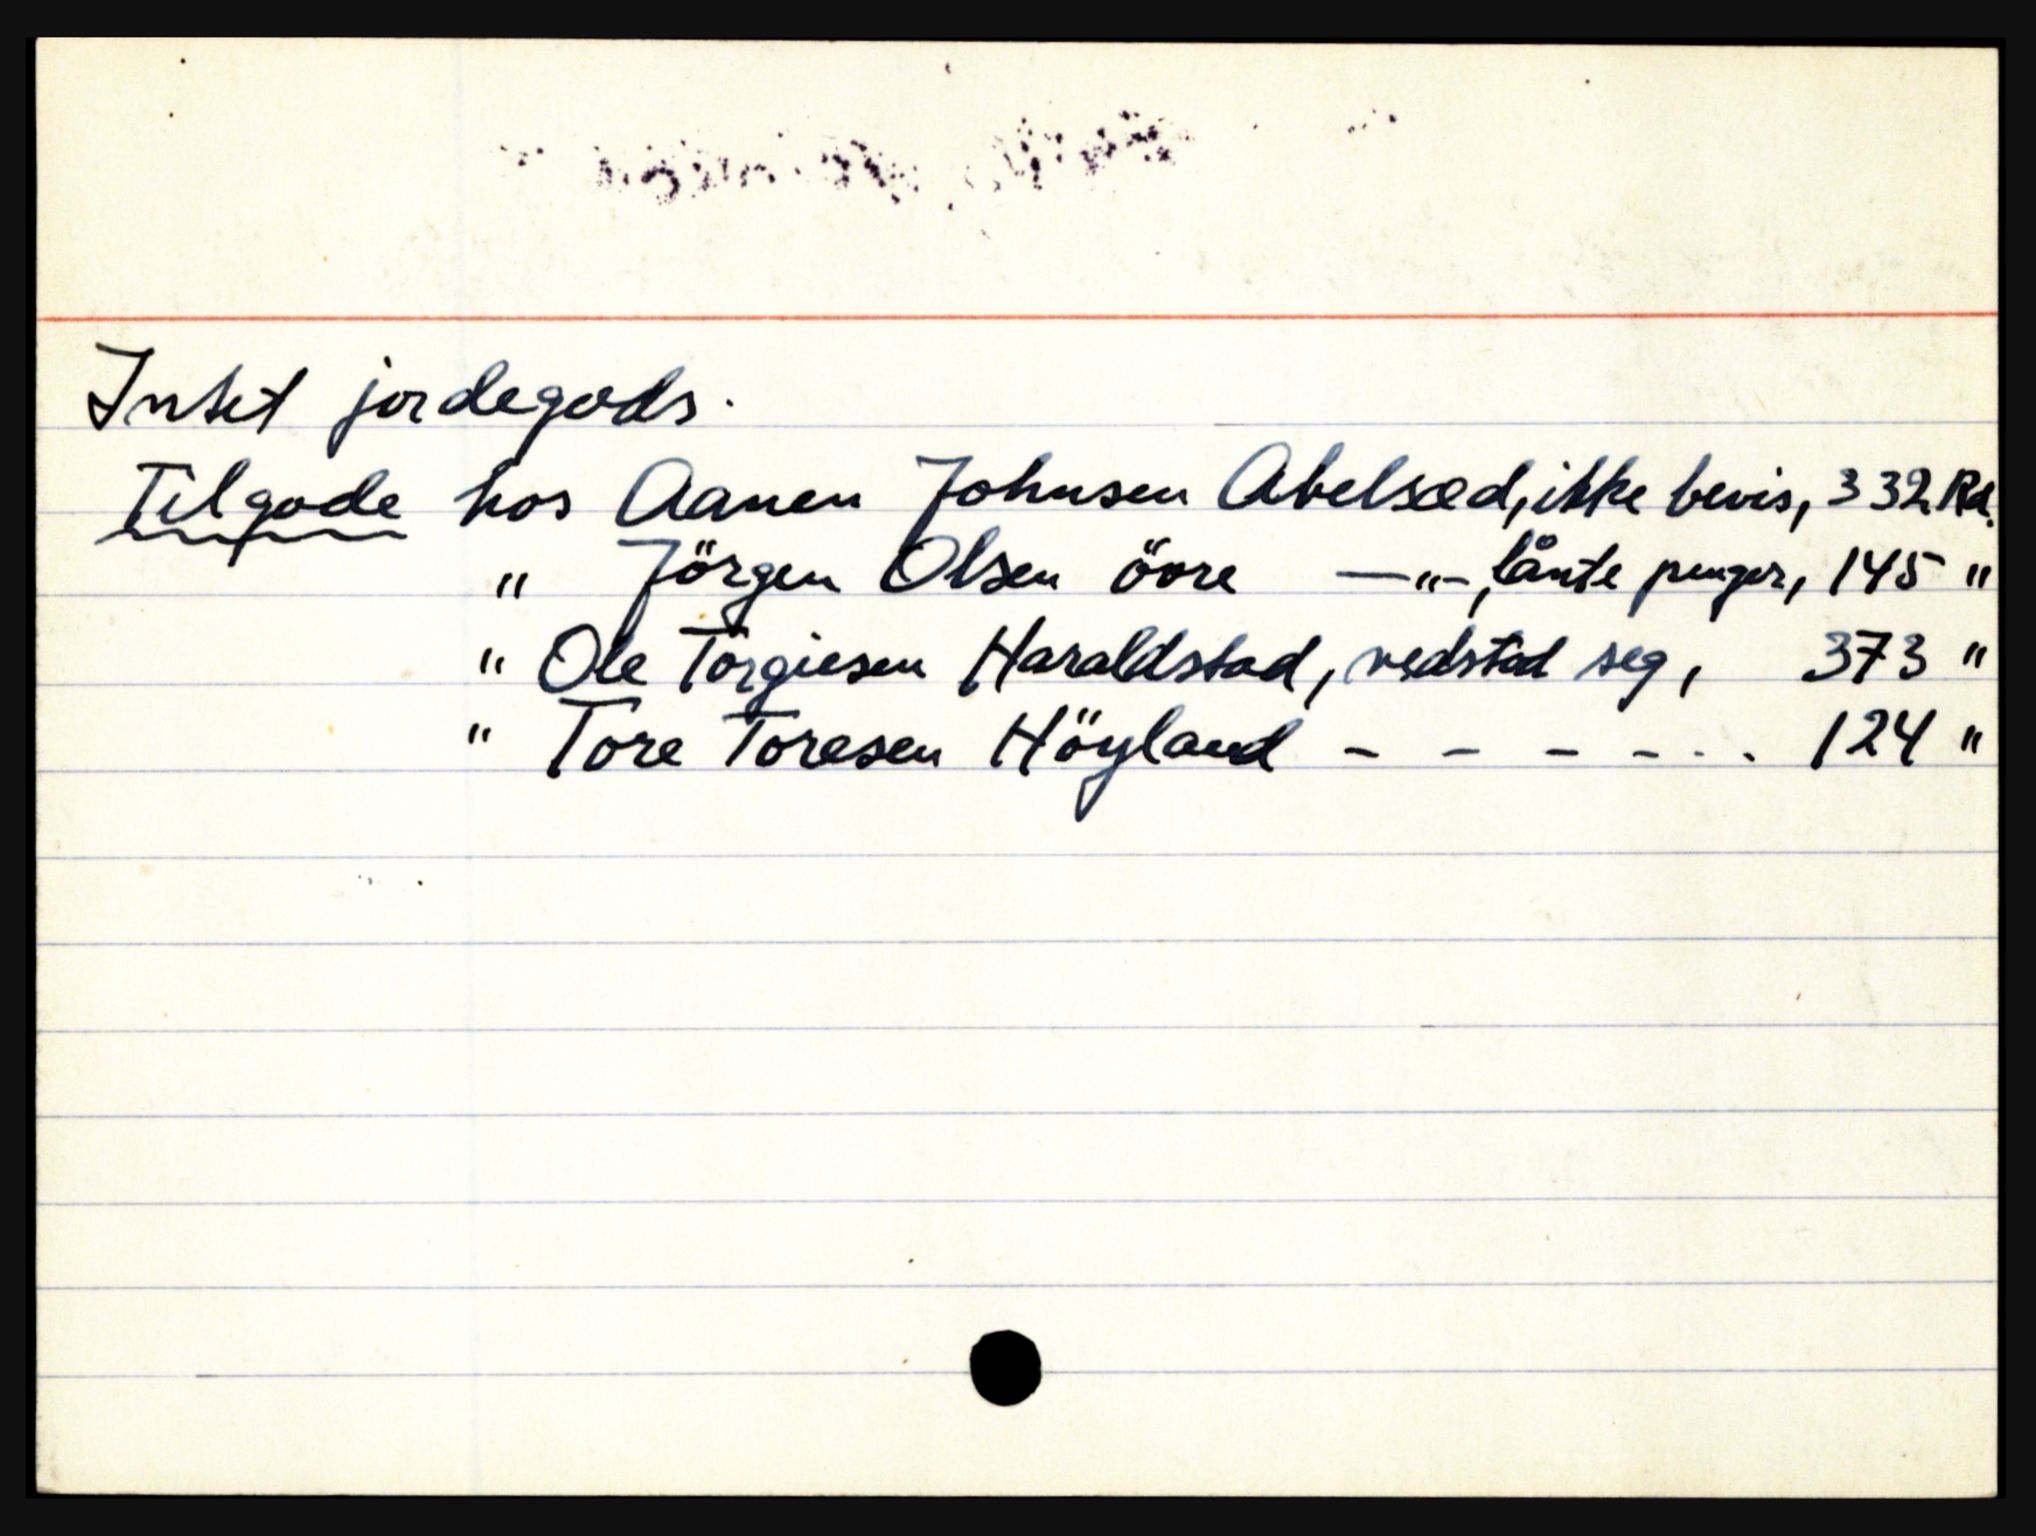 Intet jordegods.
Tilgode hos Aanen Johnsen Abelsæd, ikke bevis, 332 Rd.
" Jörgen Olsen övre —"—, lånte penger, 145 "
" Ole Torgiesen Haraldstad, vedstod seg, 373 "
" Tore Toresen Höyland - - - - - - 124 "